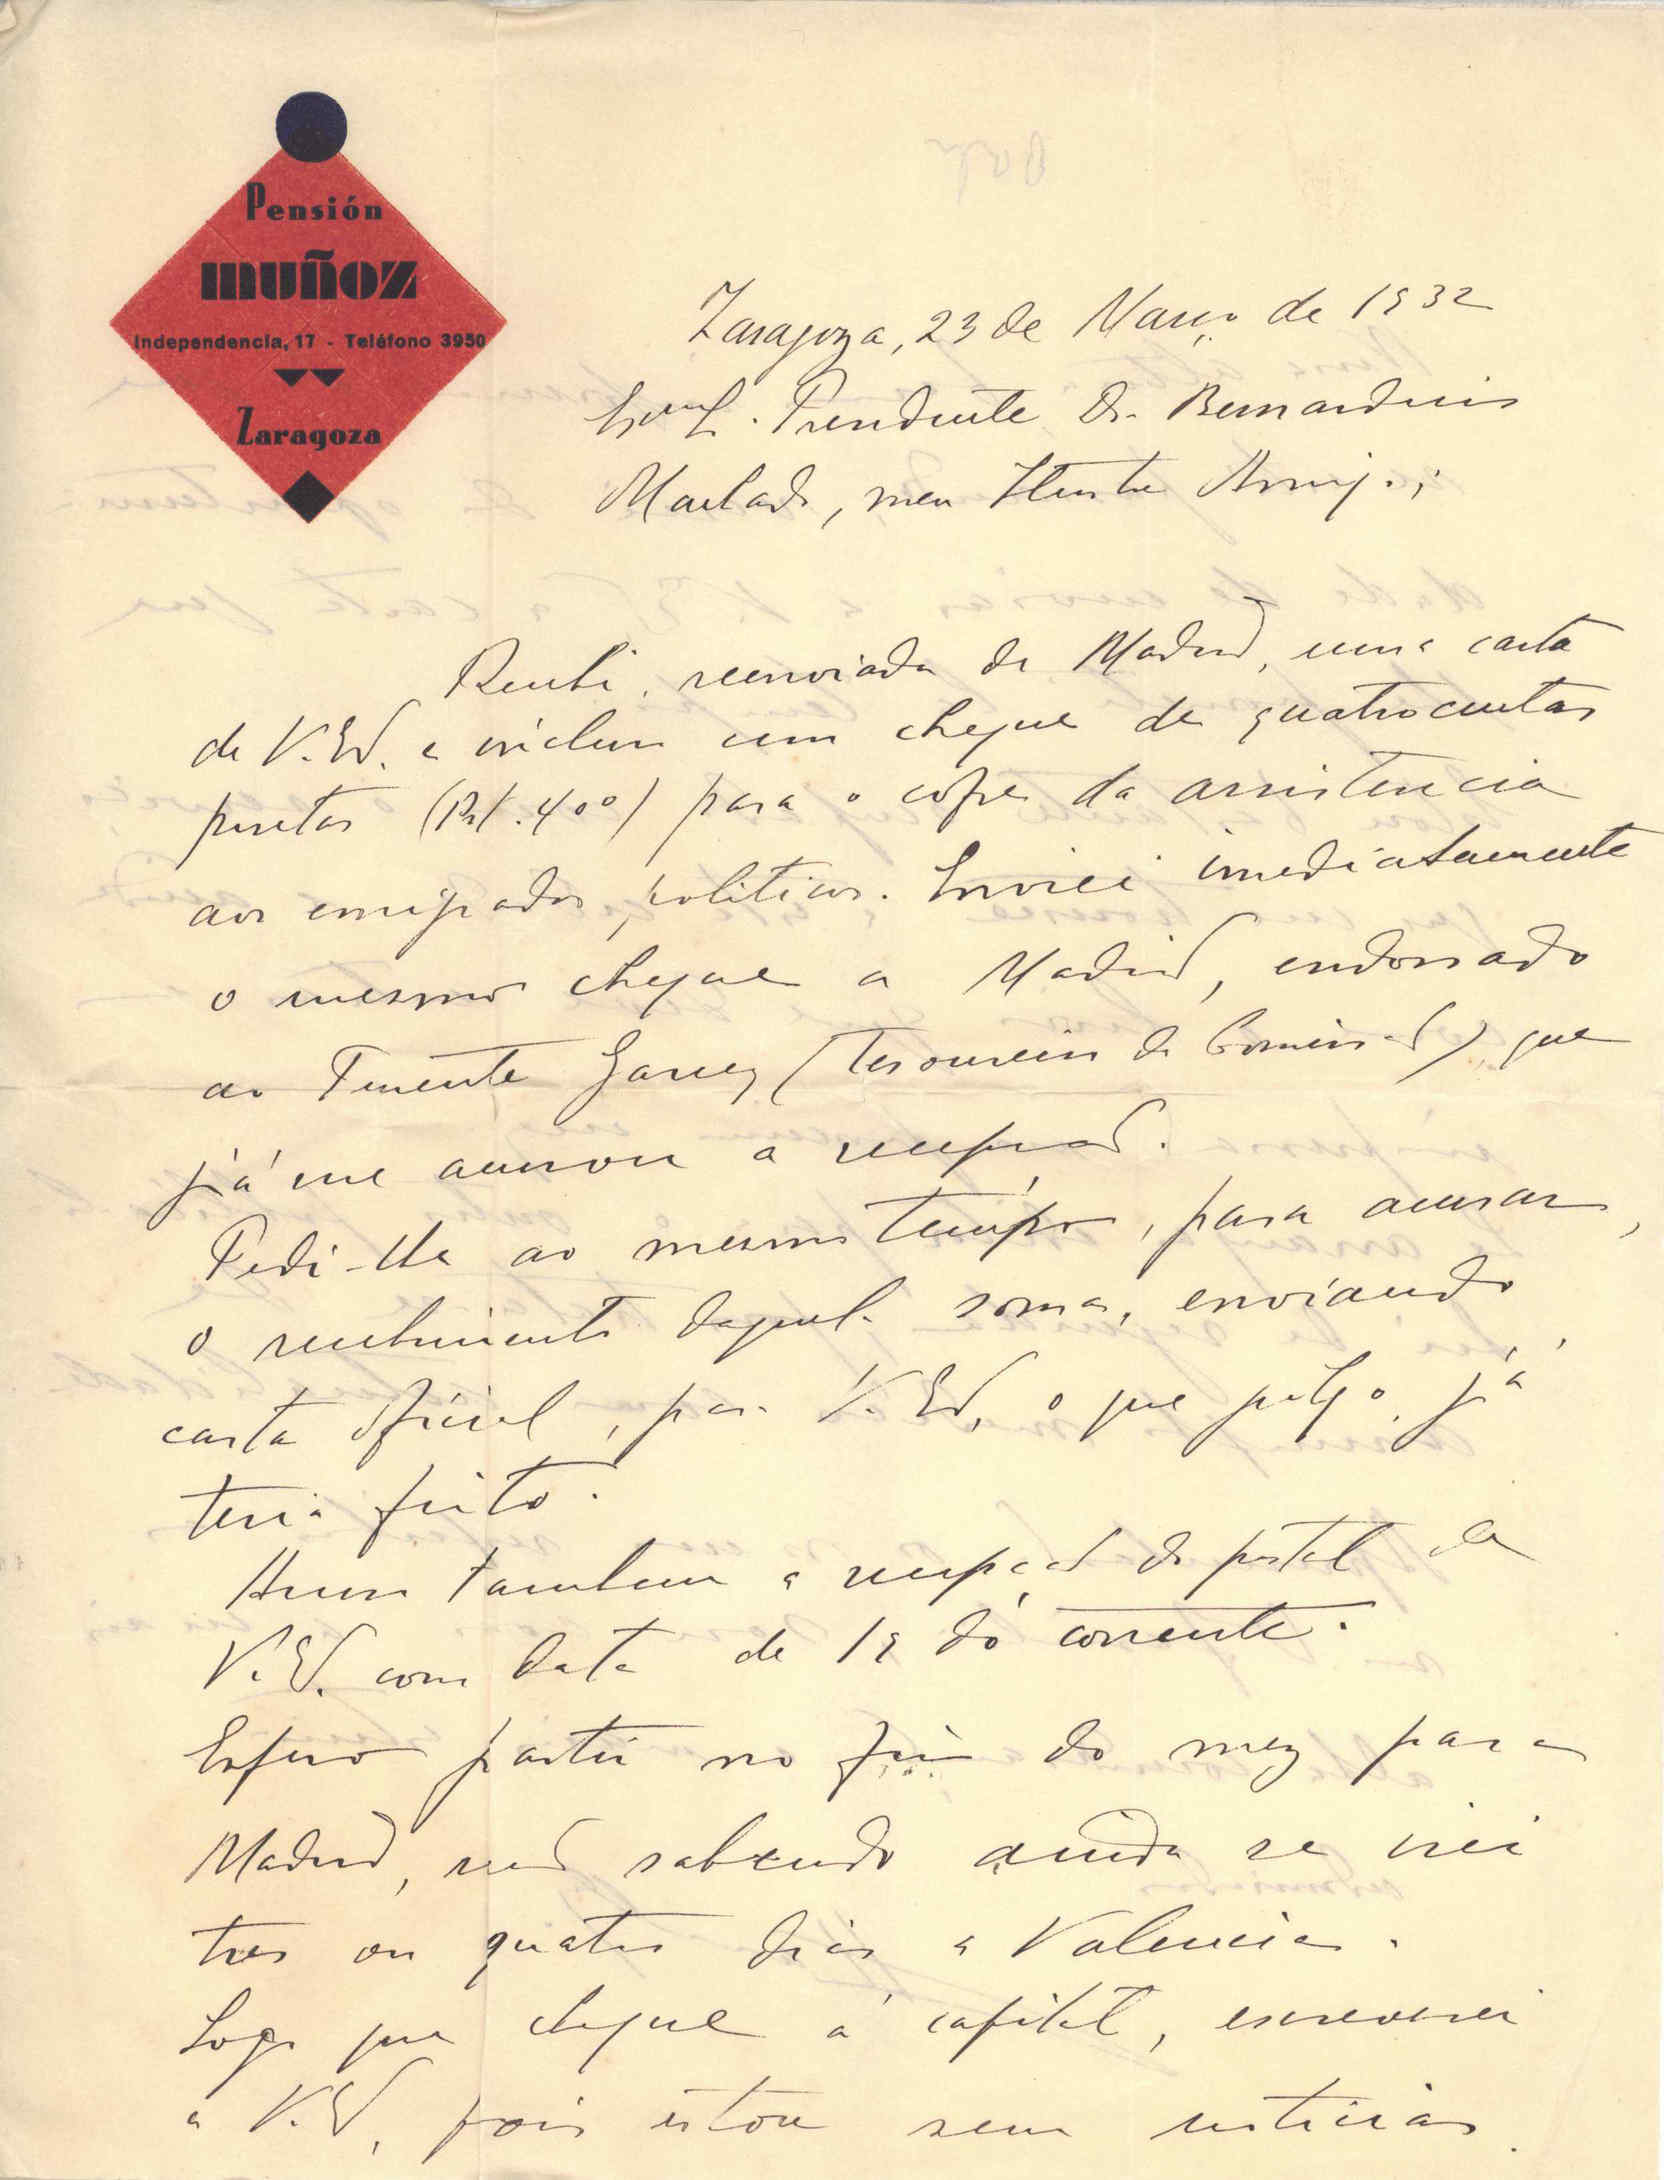 Pensión
muñoz
Independencia, 17 - Teléfono 3950
Zaragoza
Zaragoza, 23 de Março de 1932
Exmº. Presidente Dr. Bernardino
Machado, meu Ilustre Amigo;
Recebi, reenviada de Madrid, uma carta
de V. Exª. e incluso um cheque de quatrocentas
pesetas (Pst. 400) para o cofre da assistencia
aos emigrados politicos. Enviei imediatamente
o mesmo cheque a Madrid, endossado
ao Tenente Garcez (Tesoureiro da Comissão), que
já me acusou a recepção.
Pedi-lhe ao mesmo tempo, para acusar,
o recebimento daquela soma, enviando
carta oficial, para V. Exª, o que julgo já
teria feito.
Acuso tambem a recepção do postal de
V. Exª. com data de 19 do corrente.
Espero partir no fim do mez para
Madrid, não sabendo ainda se irei
tres ou quatro dias a Valencia.
Logo que chegue á capital, escreverei
a V. Exª, pois estou sem noticias